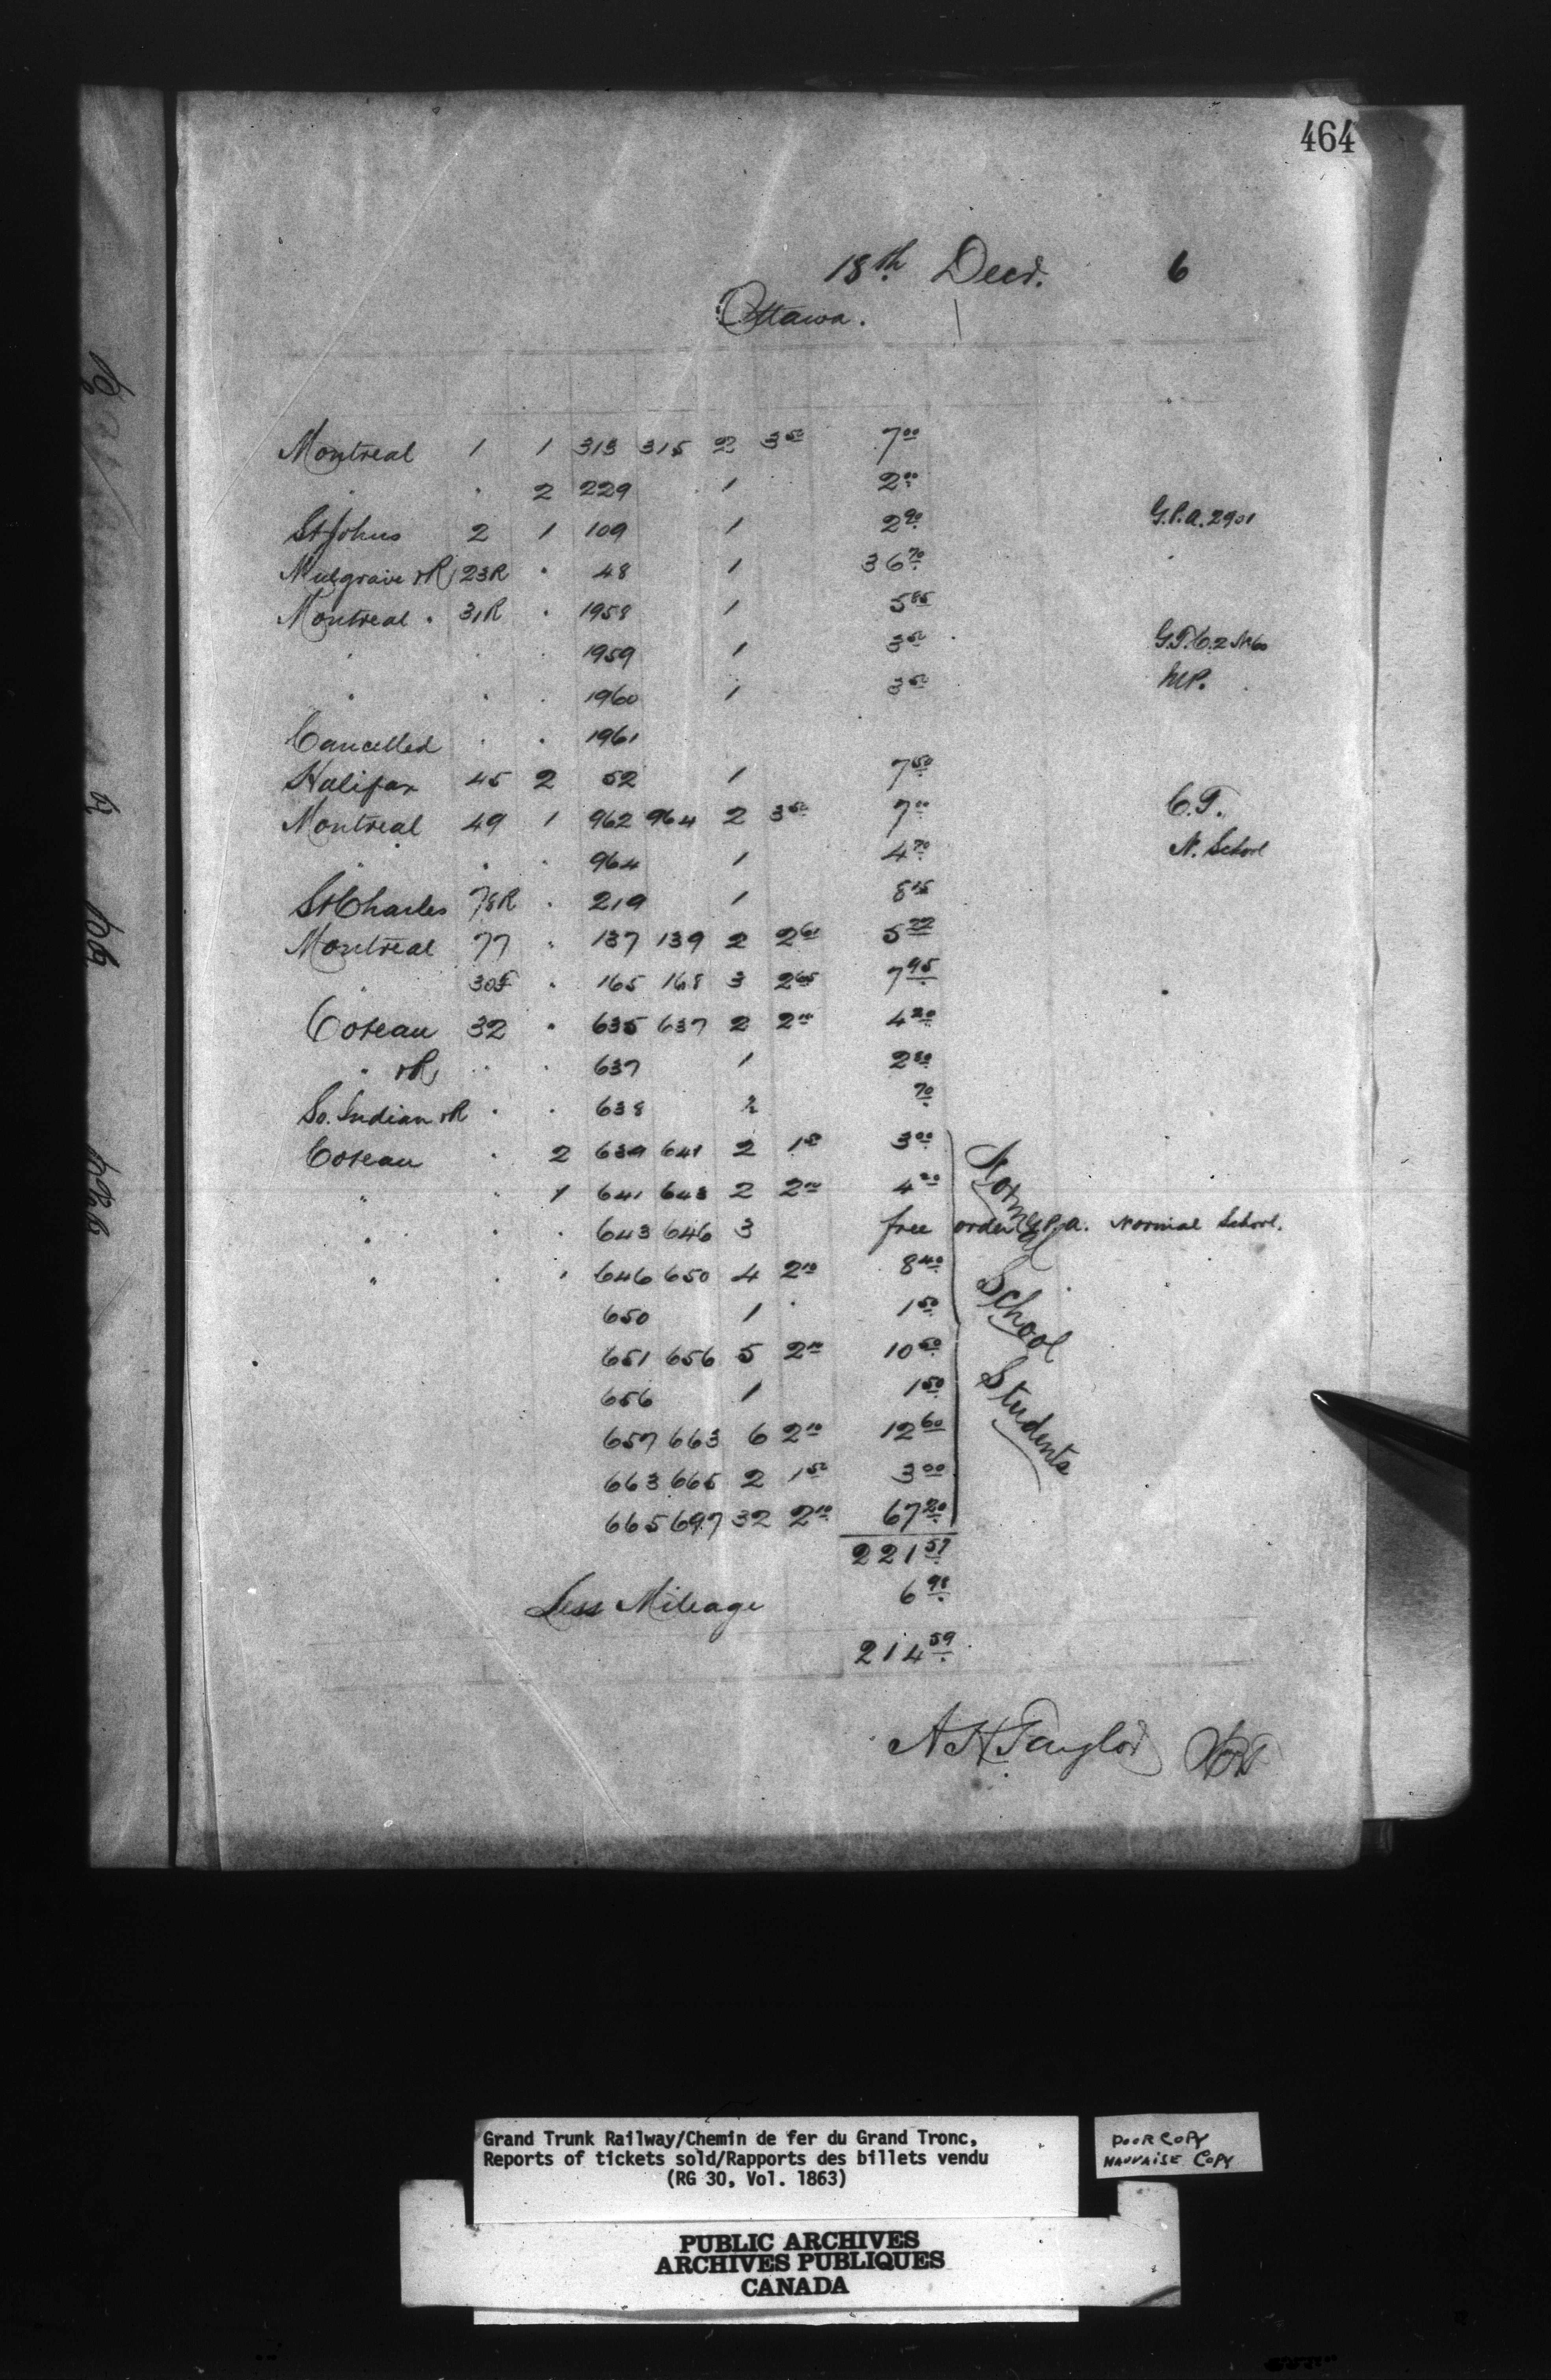 464
18th Decr. 6
Ottawa.
Montreal 1 1 313 315 2 3 50 7 00
" " 2 229 1 2 00
St Johns 2 1 109 1 2 90 G.P.A. 2901
Mulgrave &R 23R " 48 1 36 70 "
Montreal " 31R " 1958 1 5 85
" " " 1959 1 3 50 G.T.C. 2
" " " 1960 1 3 50 M.P.
Cancelled " " 1961
Halifax 45 2 52 1 7 50
Montreal 49 1 962 964 2 3 50 7 00 C.T.
" " " 964 1 4 70 N. School
St Charles 78R " 219 1 8 15
Montreal 77 " 137 139 2 2 61 5 22
" 30F " 165 168 3 2 65 7 95
Coteau 32 " 635 637 2 2 10 4 20
" &R " " 637 1 2 80
So. Indian &R " " 638 70
Coteau " 2 639 641 2 1 50 3 00
" " 1 641 643 2 2 10 4 20
" " " 643 646 3 free order G.P.A. Normal School.
" " " 646 650 4 2 10 8 40
650 1 " 1 50
651 656 5 2 10 10 50
656 1 1 50
657 663 6 2 10 12 60
663 665 2 1 50 3 00
665 697 32 2 10 67 20
Normal School Students
221 57
Less Mileage 6 98
214 59
A H Taylor
Grand Trunk Railway/Chemin de fer du Grand Tronc,
Reports of tickets sold/Rapports des billets vendu
(RG 30, Vol. 1863)
POOR COPY
MAUVAISE COPY
PUBLIC ARCHIVES
ARCHIVES PUBLIQUES
CANADA